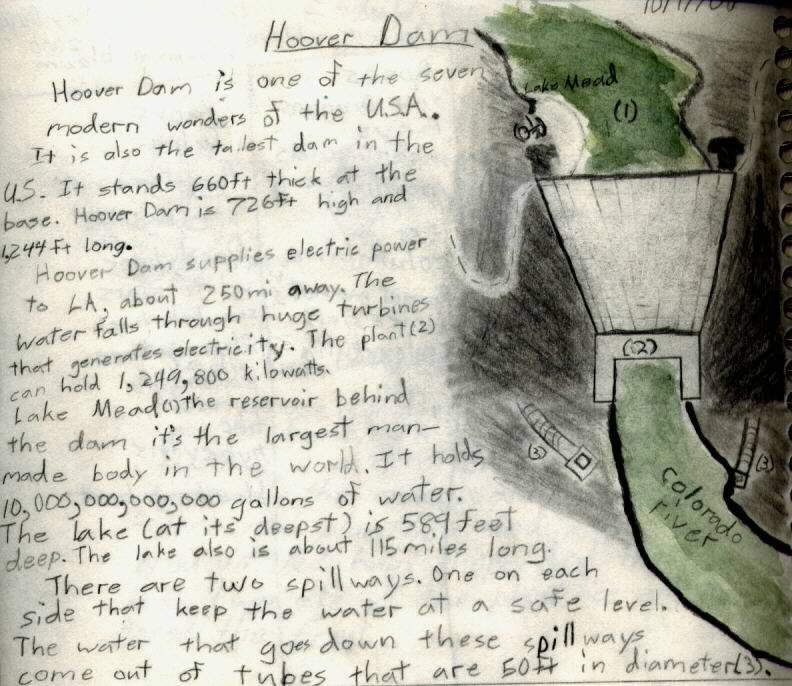 Hoover Dam
Hoover Dam is one of the seven
modern wonders of the U.S.A.
It is also the tallest dam in the
U.S. It stands 660ft thick at the
base. Hoover Dam is 726ft high and
1,244 ft long.
Hoover Dam supplies electric power
to LA, about 250mi away. The
water falls through huge turbines
that generates electricity. The plant(2)
can hold 1,249,800 kilowatts.
Lake Mead(1)the reservoir behind
the dam it's the largest man-
made body in the world. It holds
10,000,000,000,000 gallons of water.
The lake (at its deepst) is 589 feet
deep. The lake also is about 115 miles long.
There are two spillways. One on each
side that keep the water at a safe level.
The water that goes down these spillways
come out of tubes that are 50ft in diameter(3).
Lake Mead
(1)
(2)
(3)
(3)
Colorado
river